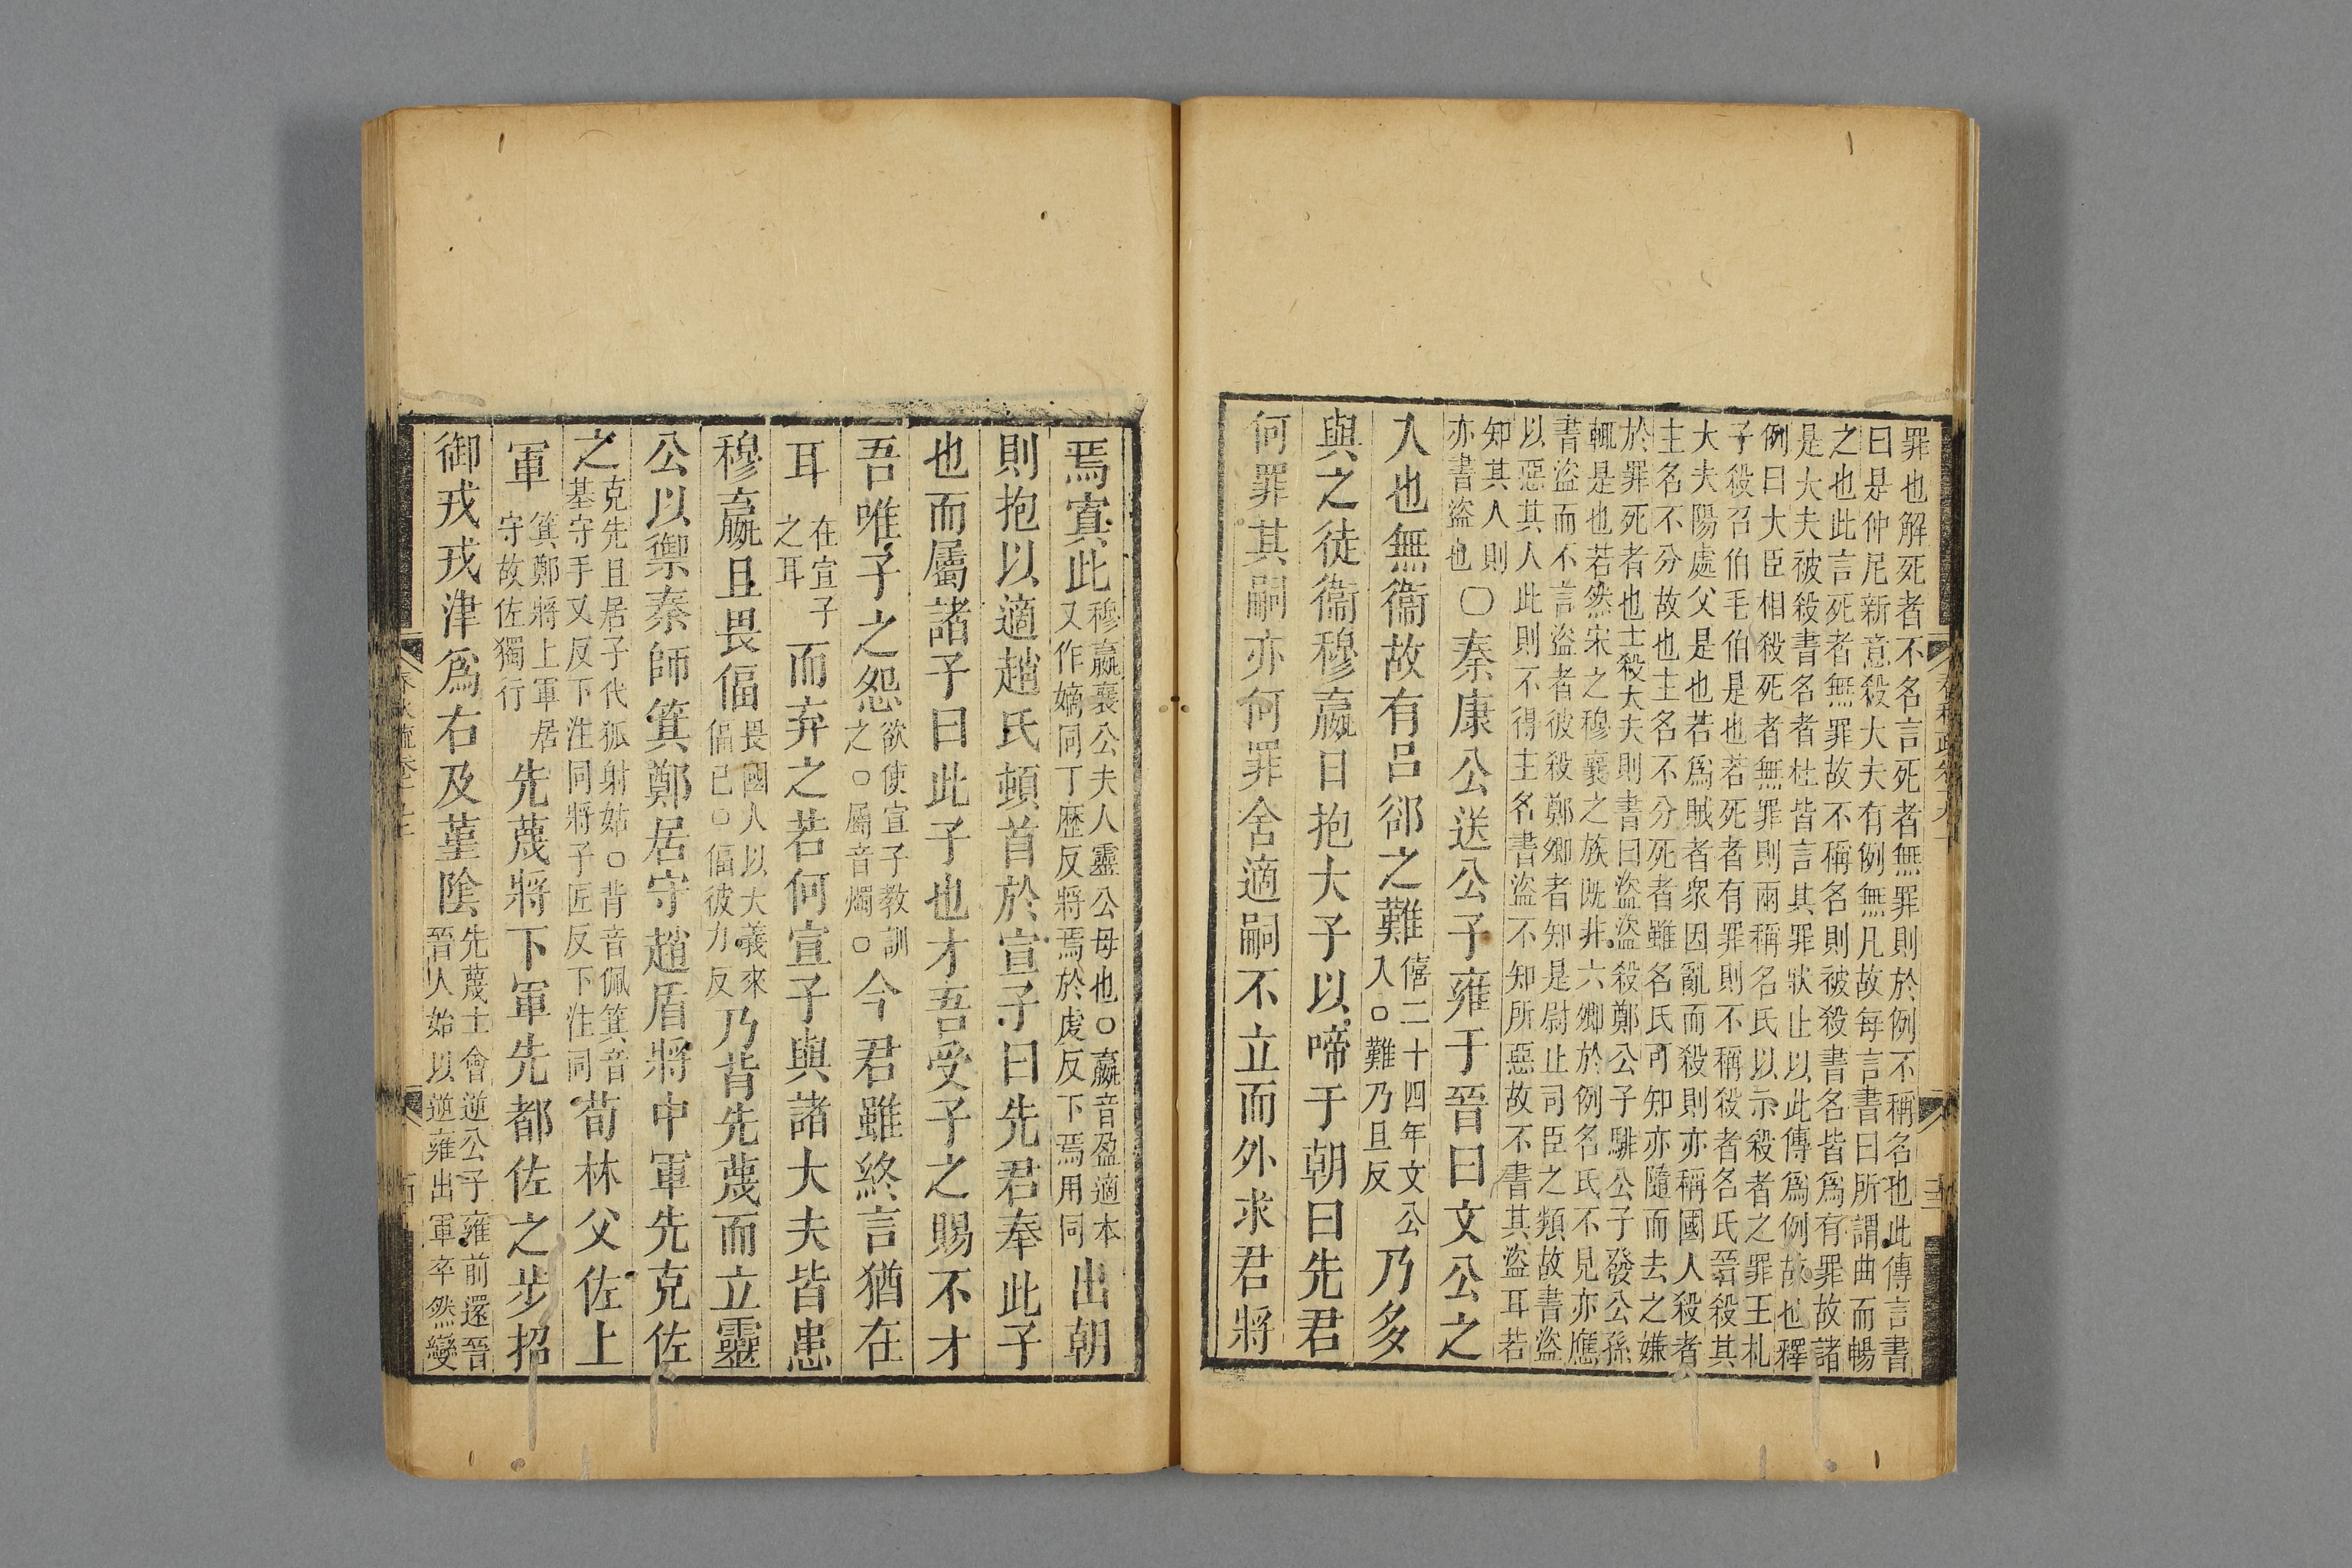 罪也解死者不名言死者無罪則於例不稱名也此傳言書
曰是仲尼新意殺大夫有例無凡故每言書曰所謂曲而暢
之也此言死者無罪故不稱名則被殺書名皆為有罪故諸
是大夫被殺書名者杜皆言其罪狀止以此傳為例故也釋
例曰大臣相殺死者無罪則兩稱名氏以示殺者之罪王札
子殺召伯毛伯是也若死者有罪則不稱殺者名氏晉殺其
大夫陽處父是也若為賊者衆因亂而殺則亦稱國人殺者
主名不分故也主名不分死者雖名氏可知亦隨而去之嫌
於罪死者也士殺大夫則書曰盜盜殺鄭公子騑公子發公孫
輒是也若然宋之穆襄之族既非六卿於例名氏不見亦應
書盜而不言盜者彼殺鄭卿者知是尉止司臣之類故書盜
以惡其人此則不得主名書盜不知所惡故不書其盜耳若
知其人則
亦書盜也
○秦康公送公子雍于晉曰文公之
入也無衞故有呂郤之難僖二十四年文公
入○難乃旦反
乃多
與之徒衞穆嬴日抱大子以啼于朝曰先君
何罪其嗣亦何罪舍適嗣不立而外求君將
焉寘此穆嬴襄公夫人靈公母也○嬴音盈適本
又作嫡同丁歷反將焉於虔反下焉用同
出朝
則抱以適趙氏頓首於宣子曰先君奉此子
也而屬諸子曰此子也才吾受子之賜不才
吾唯子之怨欲使宣子教訓
之○屬音燭○
今君雖終言猶在
耳在宣子
之耳
而弃之若何宣子與諸大夫皆患
穆嬴且畏偪畏國人以大義來
偪已○偪彼力反
乃背先蔑而立靈
公以禦秦師箕鄭居守趙盾將中軍先克佐
之克先且居子代狐射姑○背音佩箕音
基守手又反下注同將子匠反下注同
荀林父佐上
軍箕鄭將上軍居
守故佐獨行
先蔑將下軍先都佐之步招
御戎戎津為右及堇陰先蔑士會逆公子雍前還晉
晉人始以逆雍出軍卒然變